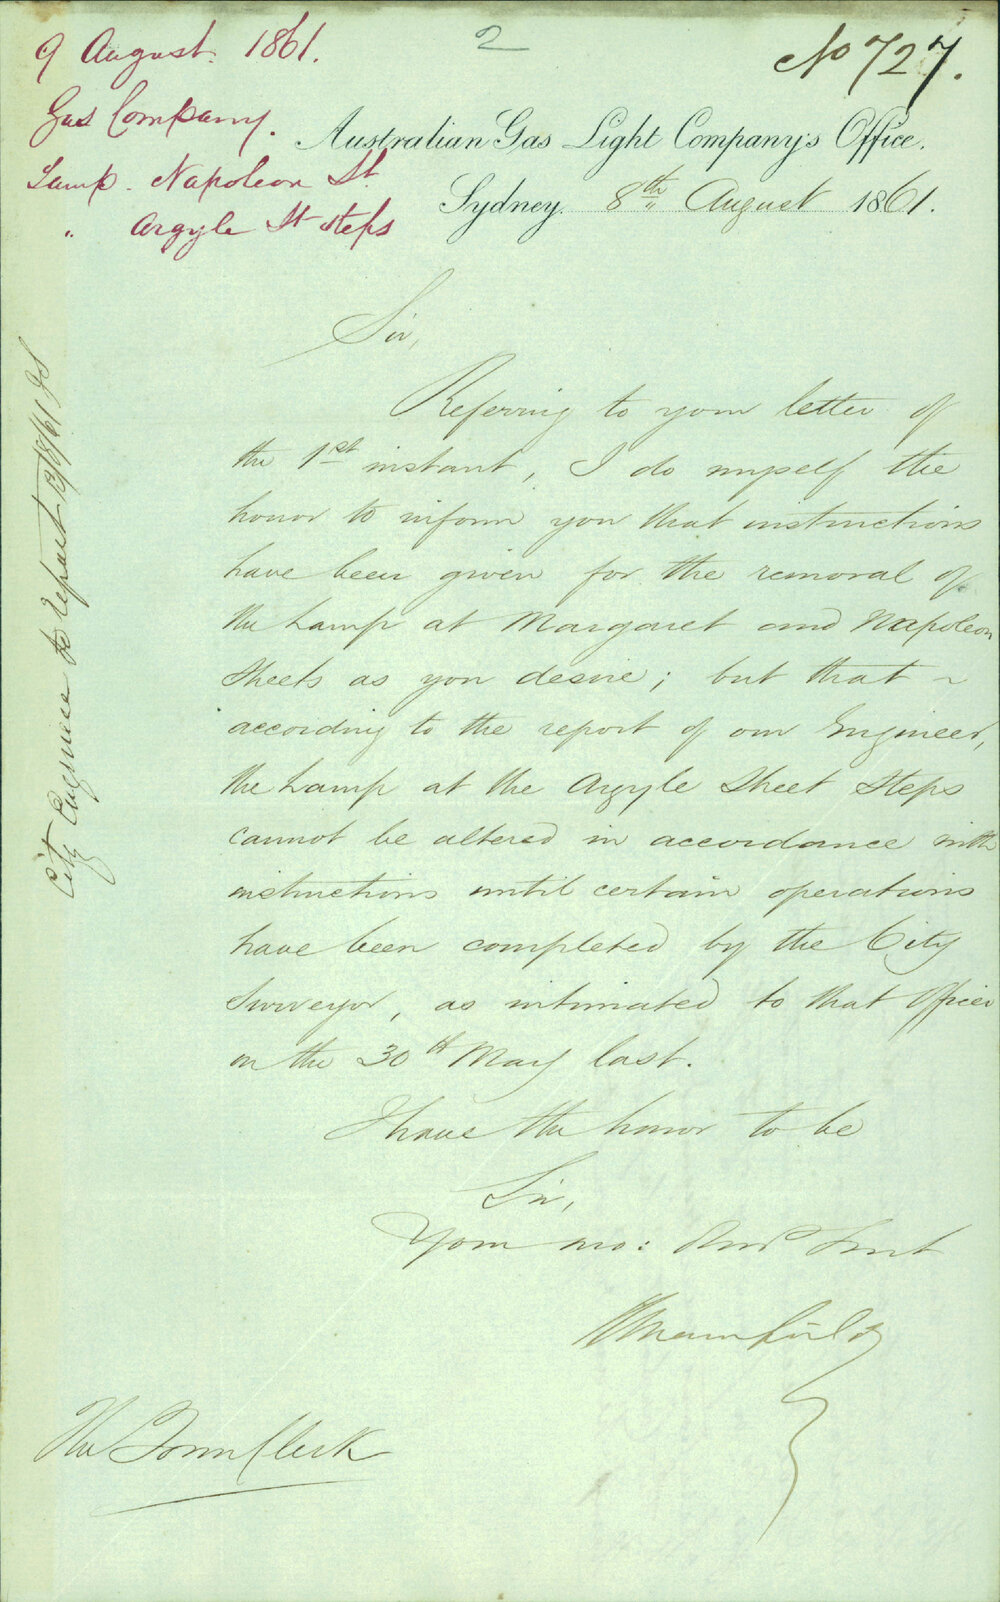 9 August. 1861.
2
No 727.
Gas Company.
Lamp. Napoleon St.
" Argyle St steps
Australian Gas Light Company's Office.
Sydney. 8th August 1861.
Sir,
Referring to your letter of
the 1st instant, I do myself the
honor to inform you that instructions
have been given for the removal of
the Lamp at Margaret and Napoleon
Streets as you desire; but that ~
according to the report of our Engineer,
the Lamp at the Argyle Street Steps
cannot be altered in accordance with
instructions until certain operations
have been completed by the City
Surveyor, as intimated to that Officer
on the 30th May last.
I have the honor to be
Sir,
Your mo: Obdt Servt
The Town Clerk
City Engineer to Report